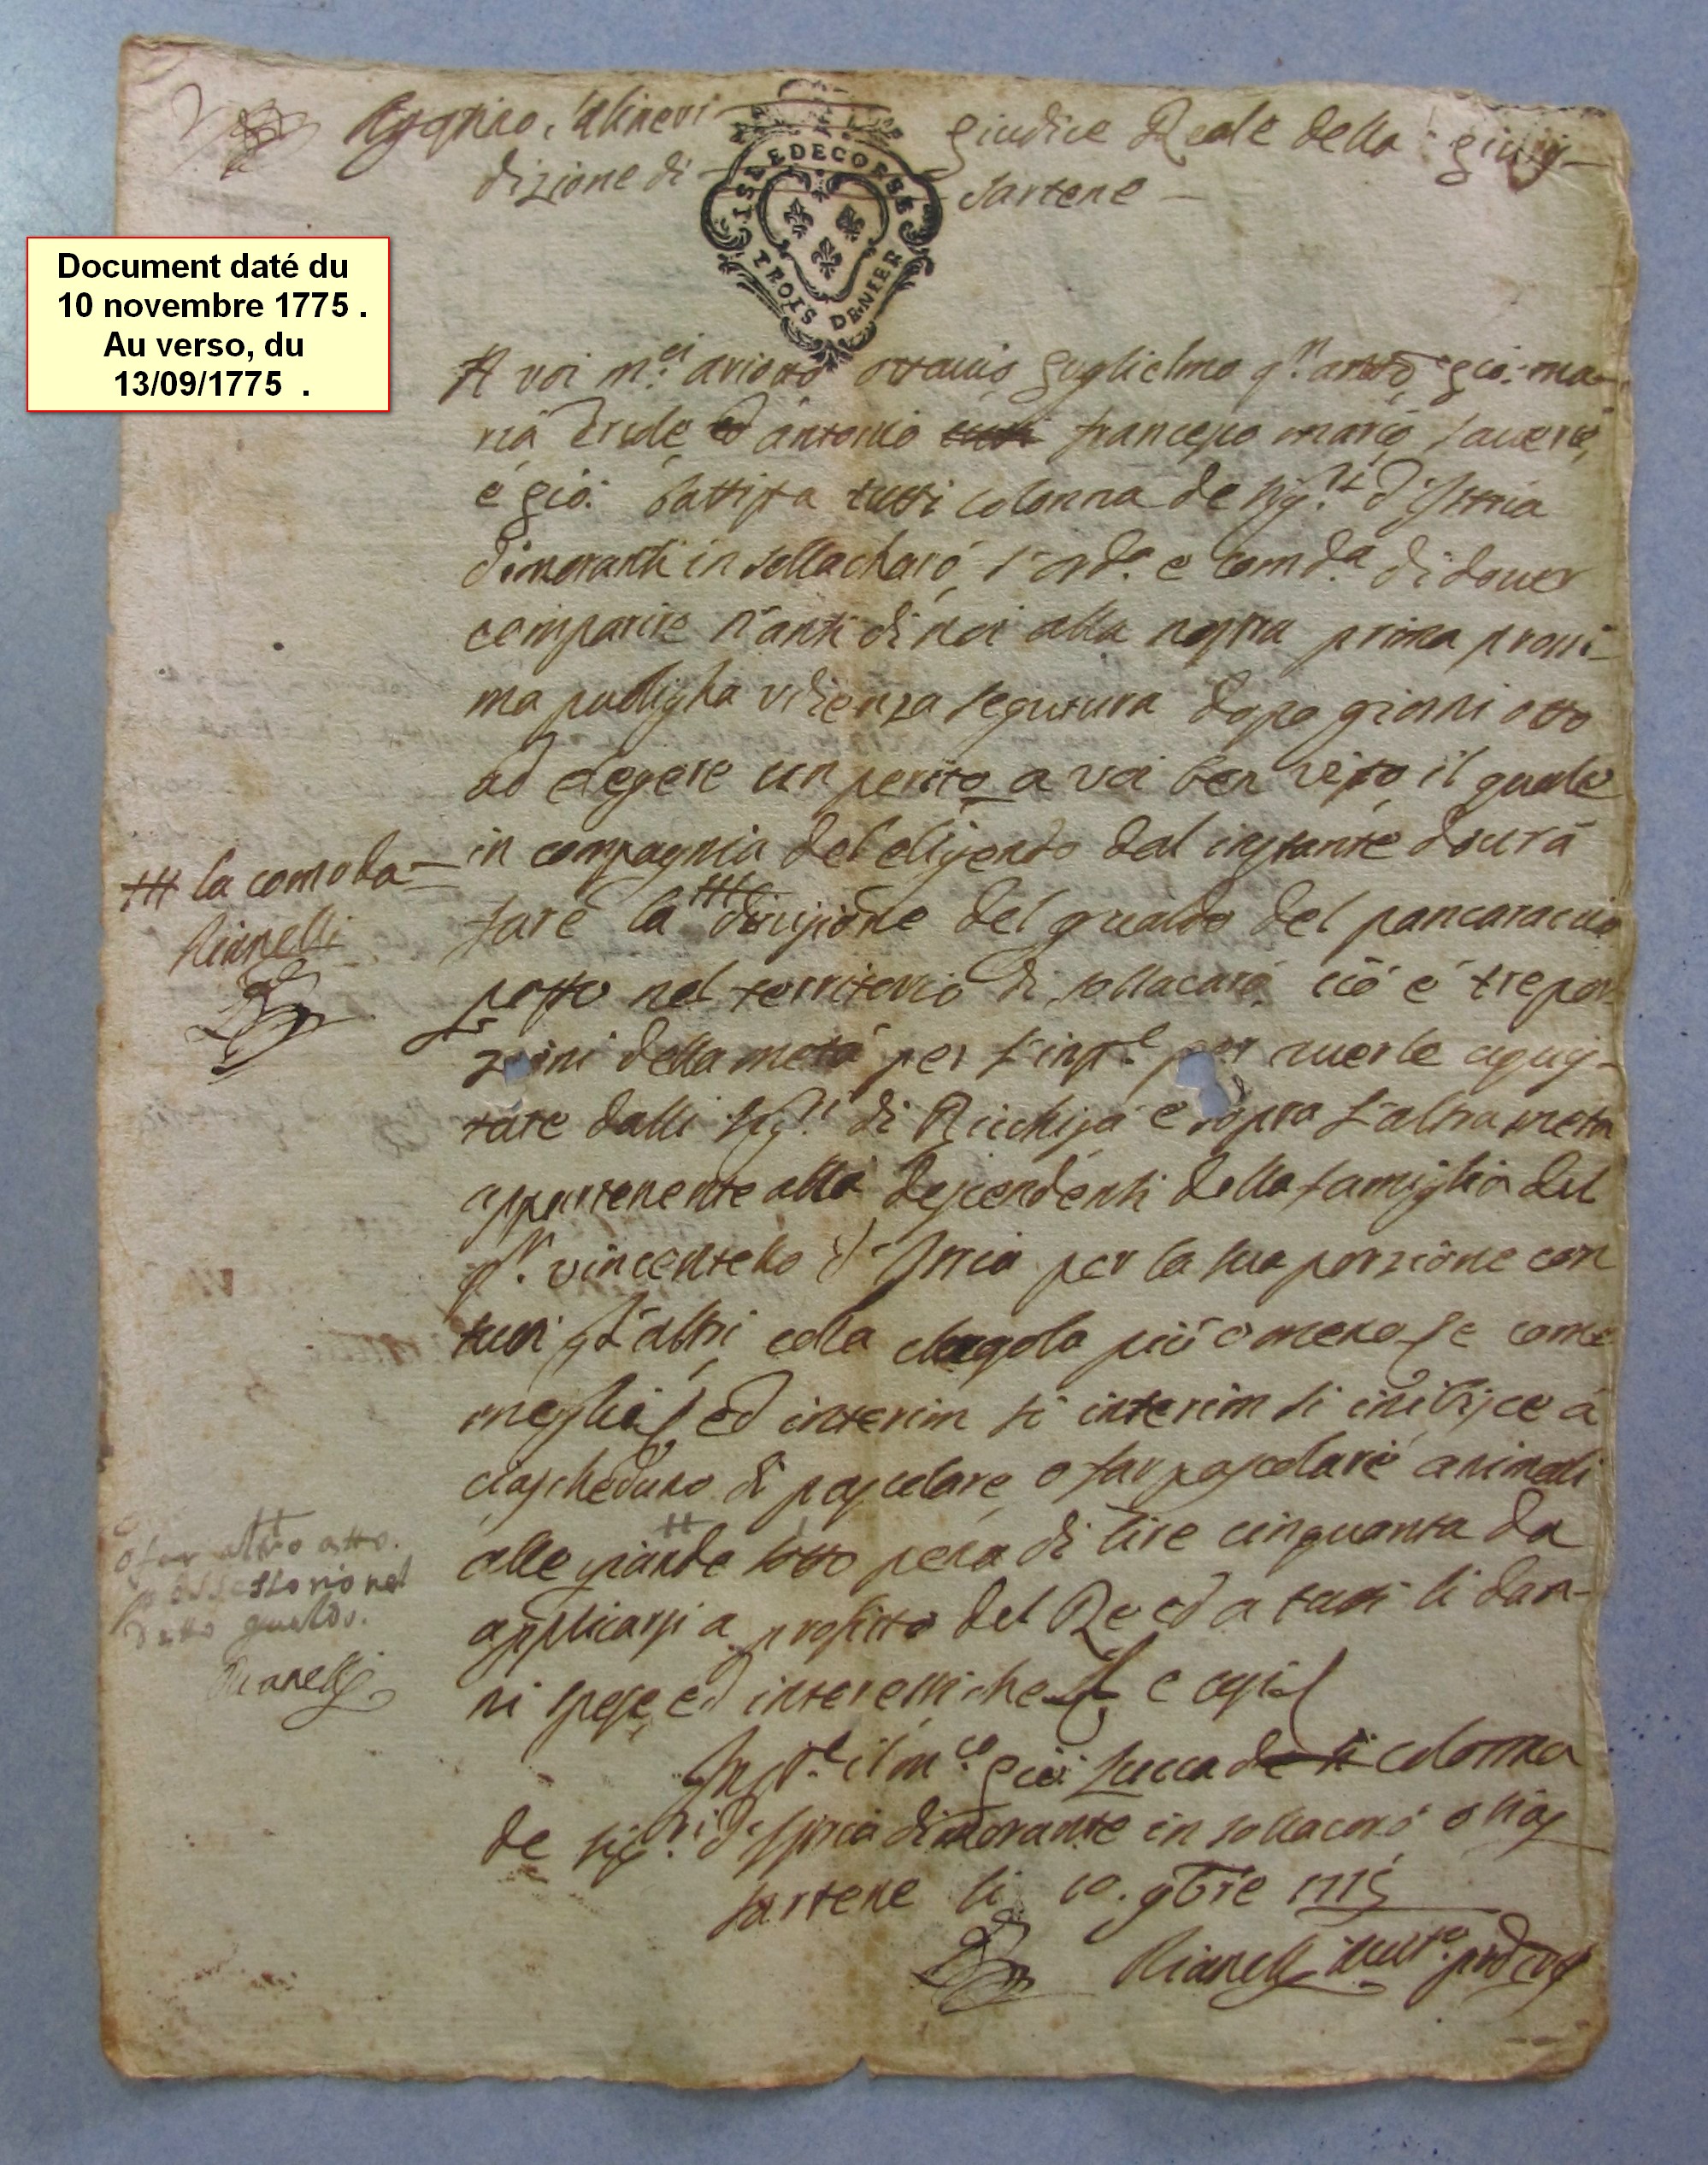 giudice Reale della giuris-
dizione di Sartene
ISLE DE CORSE
TROIS DENIER
Document daté du
10 novembre 1775 .
Au verso, du
13/09/1775 .
A voi m.ci ottavio guglielmo q.m gio: ma-
ria antonio francesco maria saverio,
e gio: battista tutti colonna de sig.ri d'Istria
dimoranti in sollacharó s'ord.a e comd.a di dover
comparire n'anti di noi alla nostra prima prossi-
ma publigha udienza segutura dopo giorni otto
ad elegere un perito a voi ben visto il quale
in compagnia del eligendo dal instante dourá
fare la divisione del gualdo del pancaraccio
+++ la comoda-
Pianelli
posto nel territorio di sollacaró ció é tre por-
zioni della metá per l'inst.e per averle aquis-
tate dalli sig.ri di Bicchisà e sopra l'altra metà
appartenente alli descendenti della famiglia del
q.m vincentello d'Istria per la sua porzione con
tutti gl'altri colla clugola più o meno se come
meglio ed interim si interim si inibisce á
ciascheduno di pascolare o far pascolare animali
alle giande sotto pena di lire cinquanta da
o far altro atto
possessorio nel
detto gualdo.
Pianelli
applicarsi a profitto del Re ed a tutti li dan-
ni spese ed interessi che e cosi
Inst.e il m.co gio: Lucca de colonna
de sig.ri d'Istria dimorante in sollacaró
sartene li 10. 9bre 1775
Pianelli